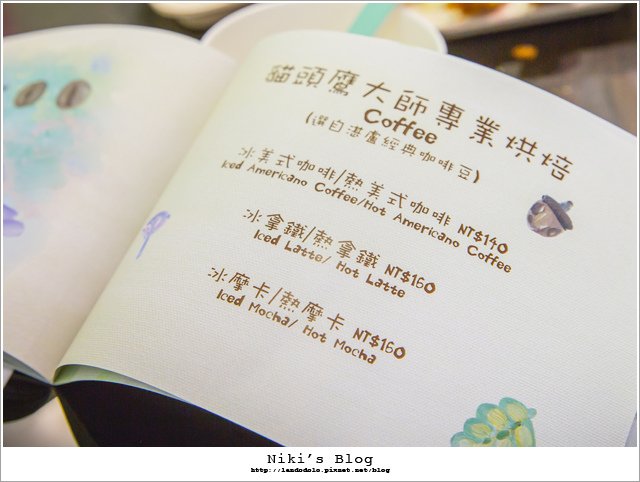 貓頭鷹大師專業烘焙
Coffee
(選自湛盧經典咖啡豆)
冰美式咖啡/熱美式咖啡 NT$140
Iced Americano Coffee/Hot Americano Coffee
冰拿鐵/熱拿鐵 NT$160
Iced Latte/ Hot Latte
冰摩卡/熱摩卡 NT$160
Iced Mocha/ Hot Mocha
Niki's Blog
http://landodolo.pixnet.net/blog